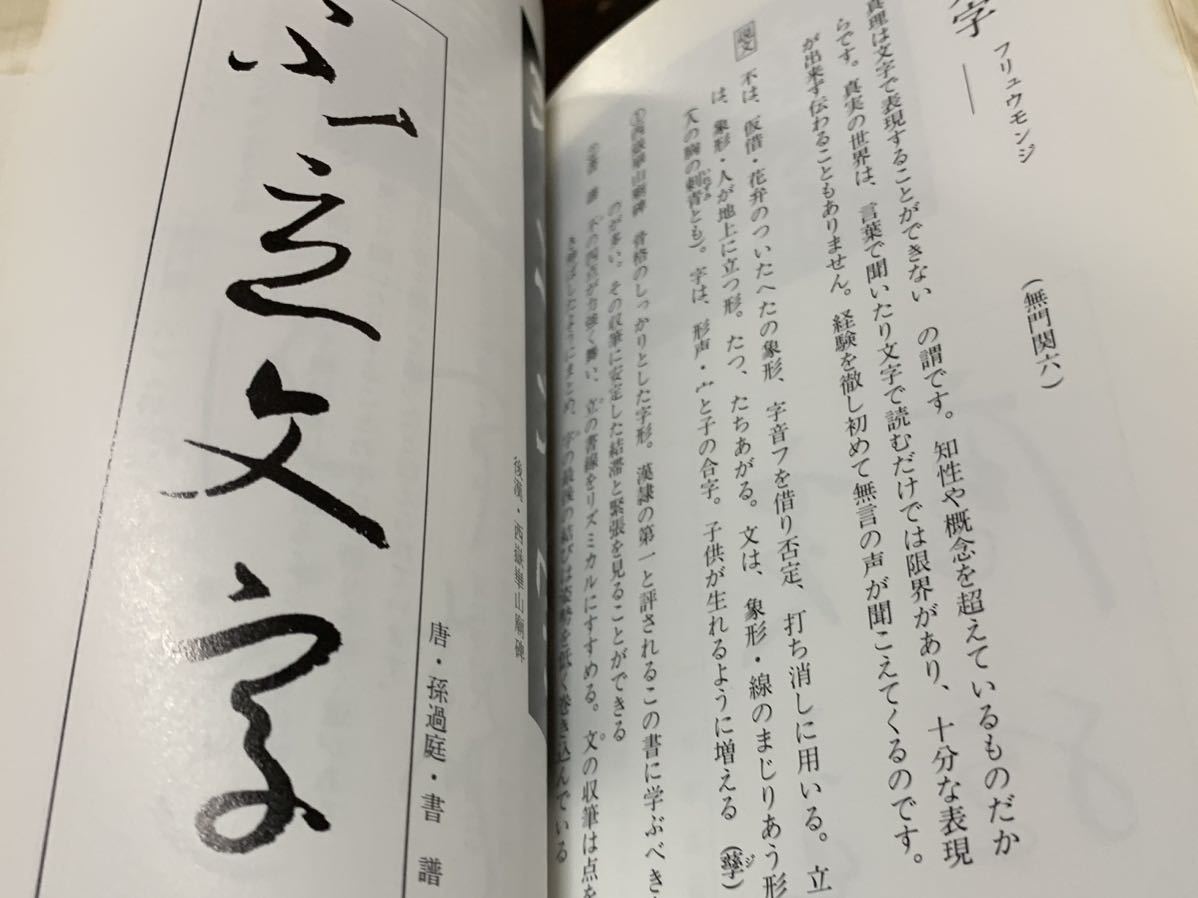 字 フリュウモンジ
(無門関六)
真理は文字で表現することができない の謂です。知性や概念を超えているものだか
らです。真実の世界は、言葉で聞いたり文字で読むだけでは限界があり、十分な表現
が出来ず伝わることもありません。経験を徹し初めて無言の声が聞こえてくるのです。
説文 不は、仮借・花弁のついたへたの象形、字音フを借り否定、打ち消しに用いる。立
は、象形・人が地上に立つ形。たつ、たちあがる。文は、象形・線のまじりあう形
(人の胸の刺青とも)。字は、形声・宀と子の合字。子供が生れるように増える
①西嶽華山廟碑 骨格のしっかりとした字形。漢隷の第一と評されるこの書に学ぶべき
のが多い。その収筆に安定した結滞と緊張を見ることができる
②書譜 不の四点が力強く舞い、立の書線をリズミカルにすすめる。文の収筆は点を
字の最後の結びは姿勢を低く巻き込んでいる
後漢・西嶽華山廟碑
唐・孫過庭・書 譜
不立文字